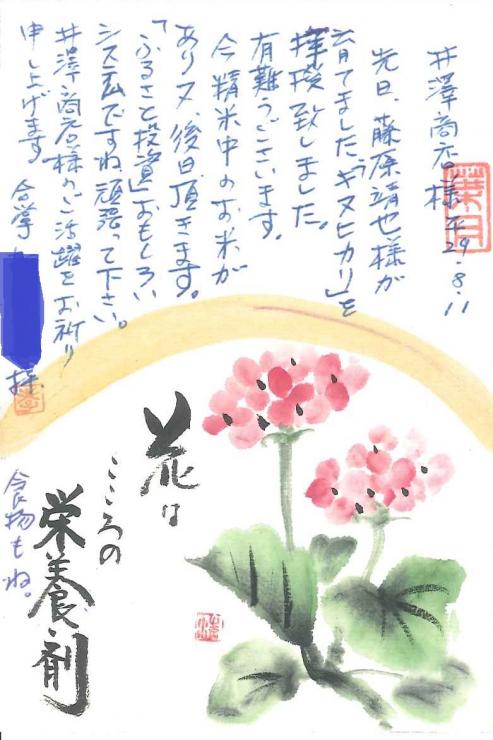 井澤商店様 平29.8.11
先日、藤原靖也様が
育てました「キヌヒカリ」を
拝授致しました。
有難うございます。
今精米中のお米が
あり又、後日頂きます。
「ふるさと投資」おもしろい
システムですね 頑張って下さい。
井澤商店様のご活躍をお祈り
申し上げます 合掌
拝
花は
こころの
栄養剤
食物もね。